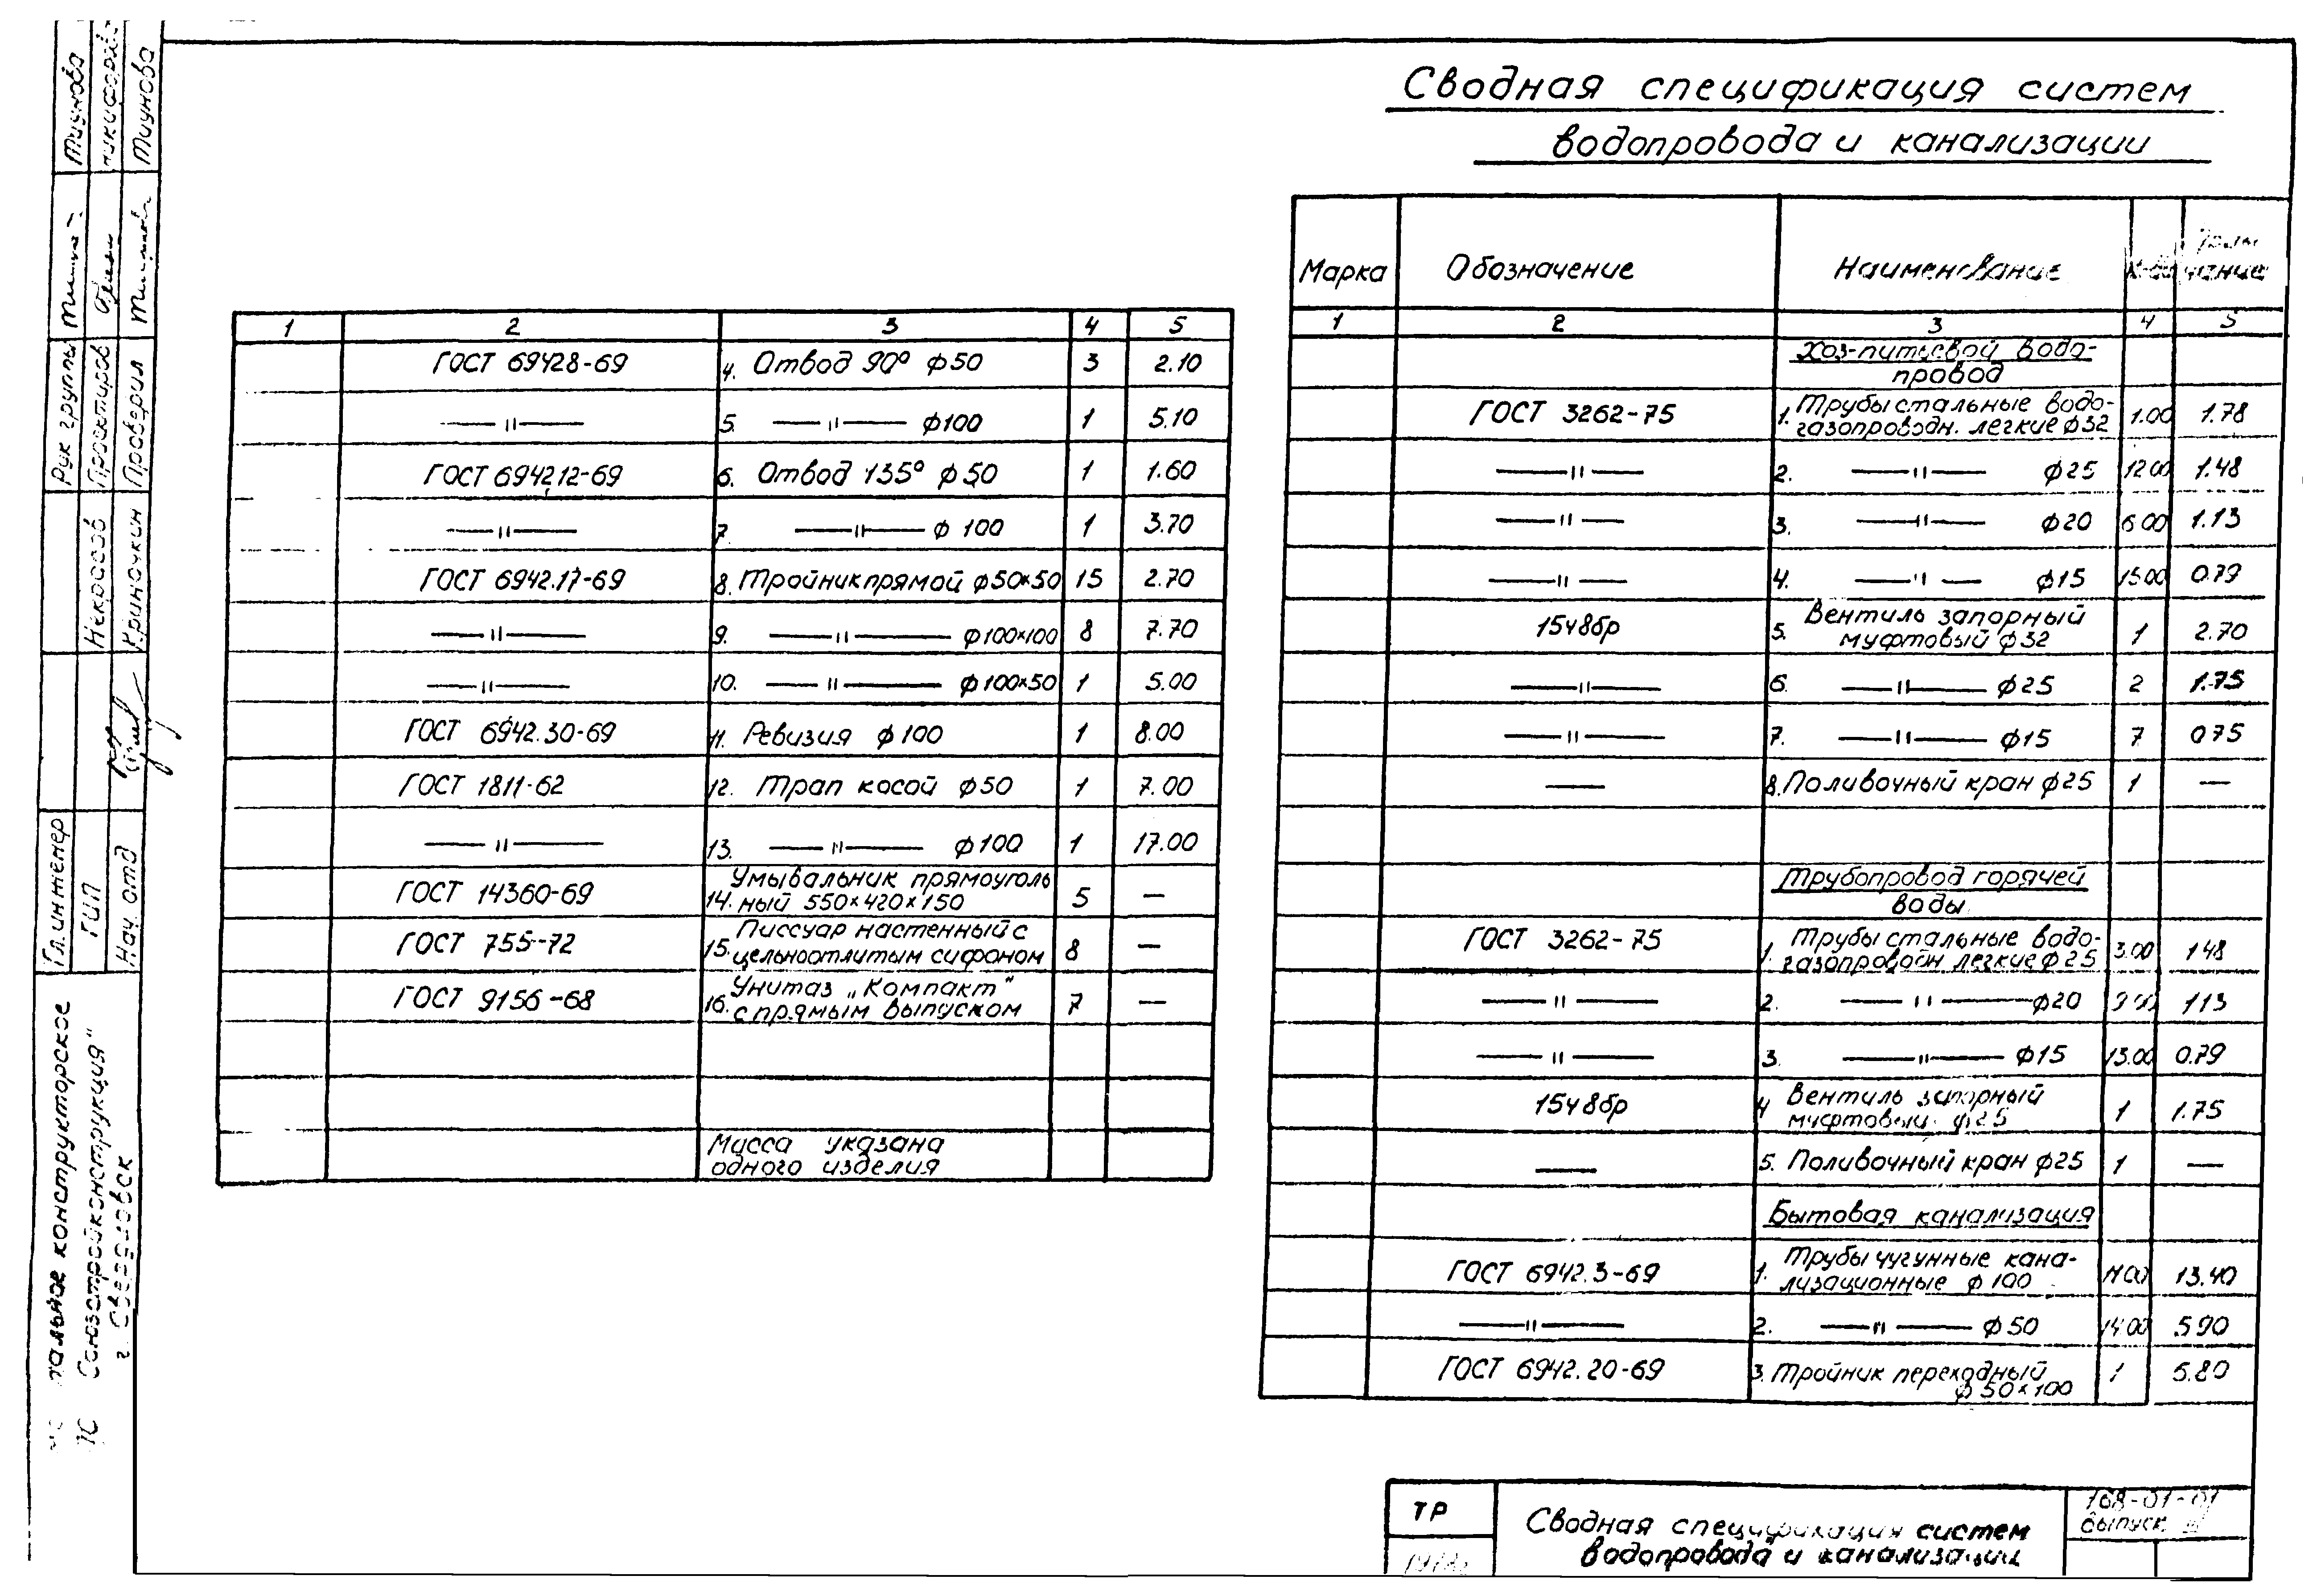 Сводная спецификация систем
водопровода и канализации
Марка Обозначение Наименование чание
1 2 3 4 5
Хоз-питьевой водо-
провод
ГОСТ 3262-75 1. Трубы стальные водо-
газопроводн. легкие ф32 1.00 1.78
—〃— 2. —〃— ф25 12.00 1.48
—〃— 3. —〃— ф20 6.00 1.13
—〃— 4. —〃— ф15 15.00 0.79
15ч8бр 5. Вентиль запорный
муфтовый ф32 1 2.70
—〃— 6. —〃— ф25 2 1.75
—〃— 7. —〃— ф15 7 0.75
— 8. Поливочный кран ф25 1 —
Трубопровод горячей
воды
ГОСТ 3262-75 1. Трубы стальные водо-
газопроводн легкие ф25 3.00 1.48
—〃— 2. —〃— ф20 1.13
—〃— 3. —〃— ф15 13.00 0.79
15ч8бр 4 Вентиль запорный
муфтовый ф25 1 1.75
— 5. Поливочный кран ф25 1 —
Бытовая канализация
ГОСТ 6942.3-69 1. Трубы чугунные кана-
лизационные ф100 13.40
—〃— 2. —〃— ф50 14.00 5.90
ГОСТ 6942.20-69 3. Тройник переходный
ф50×100 1 5.80
1 2 3 4 5
ГОСТ 6942.8-69 4. Отвод 90° ф50 3 2.10
—〃— 5. —〃— ф100 1 5.10
ГОСТ 6942.12-69 6. Отвод 135° ф50 1 1.60
—〃— 7. —〃— ф100 1 3.70
ГОСТ 6942.17-69 8. Тройник прямой ф50×50 15 2.70
—〃— 9. —〃— ф100×100 8 7.70
—〃— 10. —〃— ф100×50 1 5.00
ГОСТ 6942.30-69 11. Ревизия ф100 1 8.00
ГОСТ 1811-62 12. Трап косой ф50 1 7.00
—〃— 13. —〃— ф100 1 17.00
ГОСТ 14360-69 14. Умывальник прямоуголь
ный 550×420×150 5 —
ГОСТ 755-72 15. Писсуар настенный с
цельноотлитым сифоном 8 —
ГОСТ 9156-68 16. Унитаз „Компакт"
с прямым выпуском 7 —
Масса указана
одного изделия
ТР
Сводная спецификация систем
водопровода и канализации
168-01-01
Выпуск
Рук группы Тиунова
Проектиров
Проверил Тиунова
Гл. инженер
ГИП Некрасов
Нач. отд Криночкин
тальное конструкторское
Союзстройконструкция"
г Свердловск